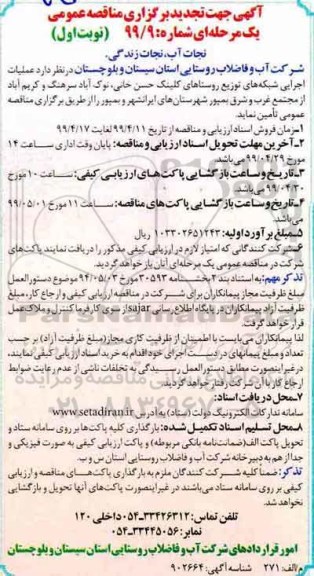 آگهی جهت تجدید برگزاری مناقصه عمومی
یک مرحله‌ای شماره: ۹۹/۹ (نوبت اول)
نجات آب، نجات زندگی.
شرکت آب و فاضلاب روستایی استان سیستان و بلوچستان در نظر دارد عملیات
اجرایی شبکه‌های توزیع روستاهای کلپتک حسن خانی، نوک آباد سرهنگ و کریم آباد
از مجتمع غرب و شرق بمپور شهرستان‌های ایرانشهر و بمپور را از طریق برگزاری مناقصه
عمومی تأمین نماید.
۱-زمان فروش اسناد ارزیابی و مناقصه از تاریخ ۹۹/۴/۱۱ لغایت ۹۹/۴/۱۷
۲-آخرین مهلت تحویل اسناد ارزیابی و مناقصه: پایان وقت اداری ساعت ۱۴
مورخ ۹۹/۰۴/۲۹ می باشد
۳-تاریخ و ساعت بازگشایی پاکت‌های ارزیابی کیفی: ساعت ۱۰ مورخ
۹۹/۰۴/۳۰ می باشد.
۴-تاریخ وساعت بازگشایی پاکت‌های مناقصه: ساعت ۱۱ مورخ ۹۹/۰۵/۰۱
می باشد.
۵-مبلغ برآورد اولیه: ۱۰۳۳۰۲۶۵۱۲۴۳ ریال
۶-شرکت کنندگانی که امتیاز لازم در ارزیابی کیفی مذکور را دریافت نمایند پاکت‌های
شرکت در مناقصه عمومی یک مرحله‌ای آنان باز خواهد گردید.
تذکر مهم: به استناد بند ۲ بخشنامه ۳۰۵۹۳ مورخ ۹۴/۰۵/۰۳ موضوع دستورالعمل
مبلغ ظرفیت مجاز پیمانکاران برای شرکت در مناقصه ارزیابی کیفی و ارجاع کار، مبلغ
ظرفیت آزاد پیمانکاران در پایگاه اطلاع رسانی sajar از سوی کارفرما کنترل و ملاک عمل
قرار خواهد گرفت.
لذا پیمانکاران می‌بایست با اطمینان از ظرفیت کاری مجاز (مبلغ ظرفیت آزاد) بر حسب
تعداد و مبلغ پیمانهای در دست اجرای خود اقدام به خرید اسناد ارزیابی کیفی نمایند،
در غیر اینصورت مطابق دستورالعمل رسیدگی به تخلفات ناشی از عدم رعایت ضوابط
ارجاع کار با آن شرکت رفتار خواهد گردید.
۷-محل دریافت اسناد:
سامانه تدارکات الکترونیک دولت (ستاد) به آدرس www.setadiran.ir
۸-محل تسلیم اسناد تکمیل شده: بارگذاری کلیه پاکت‌ها بر روی سامانه ستاد و
تحویل پاکت الف (ضمانت‌نامه بانکی مربوطه) و پاکت ارزیابی کیفی به صورت فیزیکی و
جدا از هم به دبیرخانه شرکت آب و فاضلاب روستایی استان س و ب.
تذکر: ضمناً کلیه شرکت کنندگان ملزم به بارگذاری پاکت‌های مناقصه و ارزیابی
کیفی بر روی سامانه ستاد می‌باشند در غیر اینصورت پاکت‌های آنها تحویل و بازگشایی
نخواهد شد.
تلفن تماس: ۳۳۴۲۶۳۱۲-۰۵۴ داخلی ۱۲۰
نمابر: ۳۳۴۴۵۰۵۶-۰۵۴
امور قراردادهای شرکت آب و فاضلاب روستایی استان سیستان و بلوچستان
م الف: ۲۷۱ شناسه آگهی: ۹۰۲۶۶۴